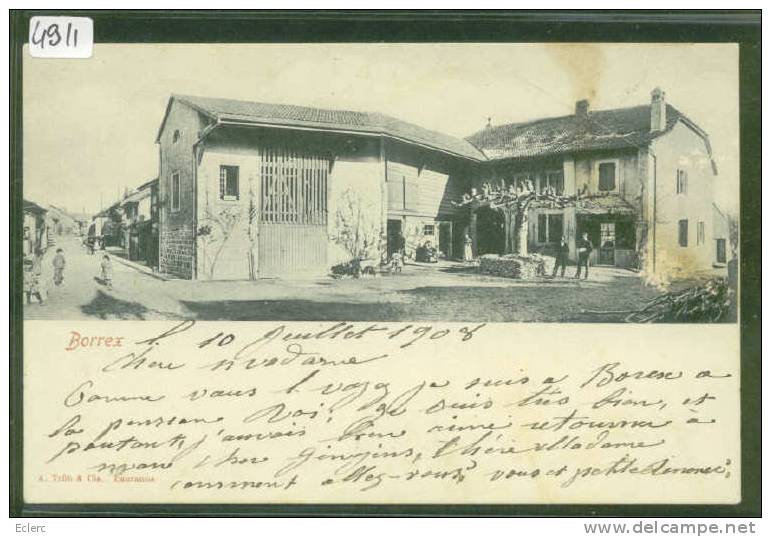 4911
Borrex
le 10 Juillet 1908
Chère Madame
Comme vous l. voyez je suis a Borex a
la pension Roi, je suis très bien, et
pourtant, j'aurais bien aimé retourner à
mon cher Gingins, Chère Madame
comment allez-vous, vous et petite Simone?
A. & Cie.
Eclerc
http://www.delcampe.net